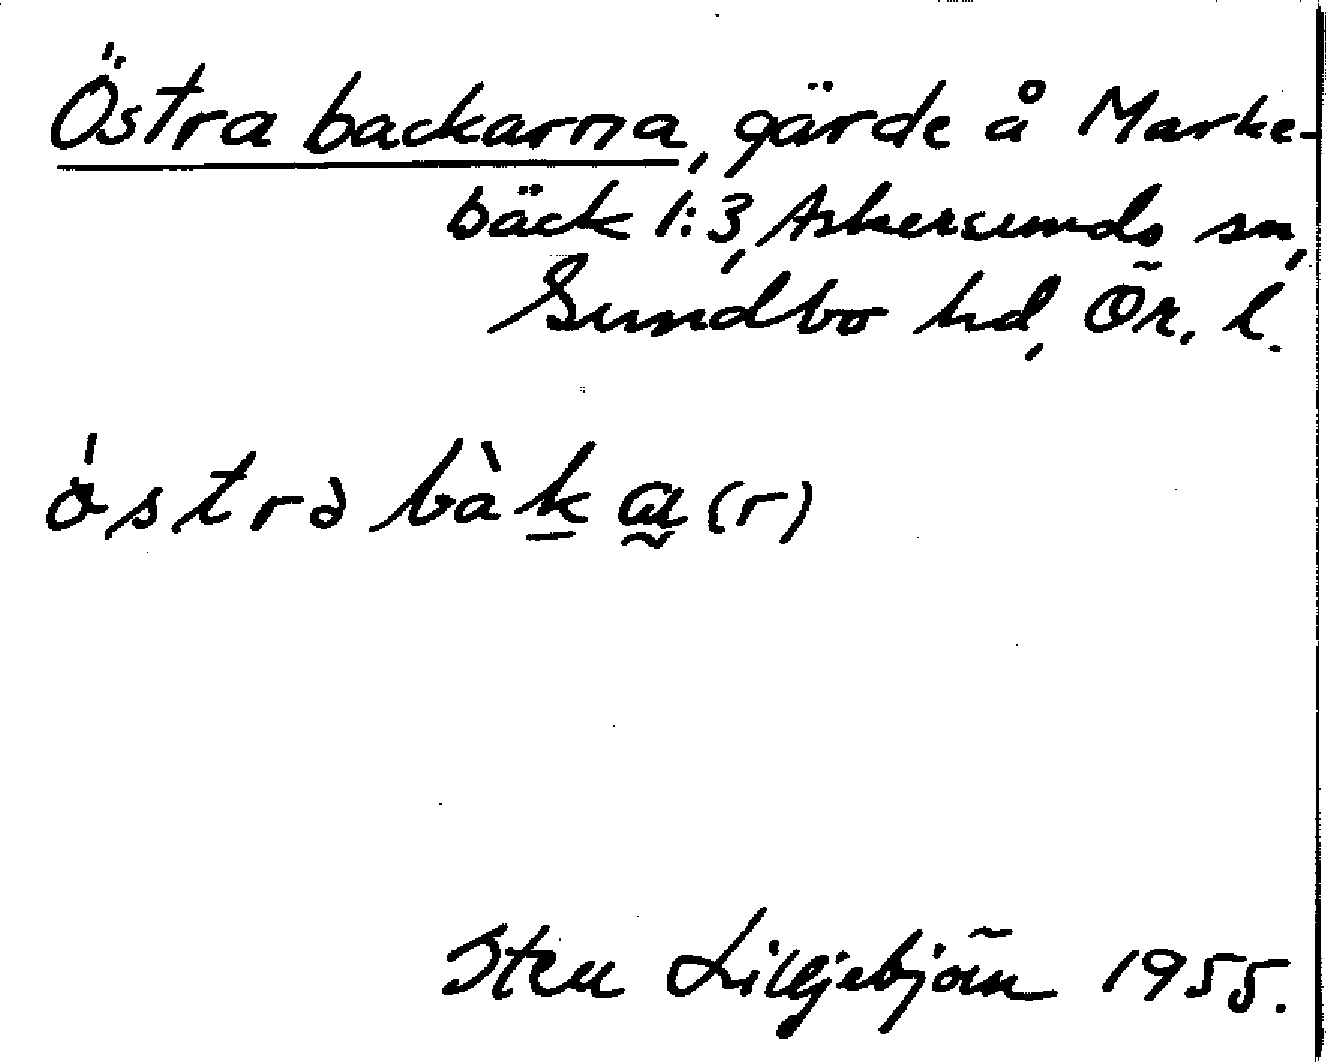 Östra backarna, gärde å Marke-
bäck 1:3, Askersunds sn,
Sundbo hd, Ör. l.
östrə bàk̲a̰(r)
Sten Lilljebjörn 1955.